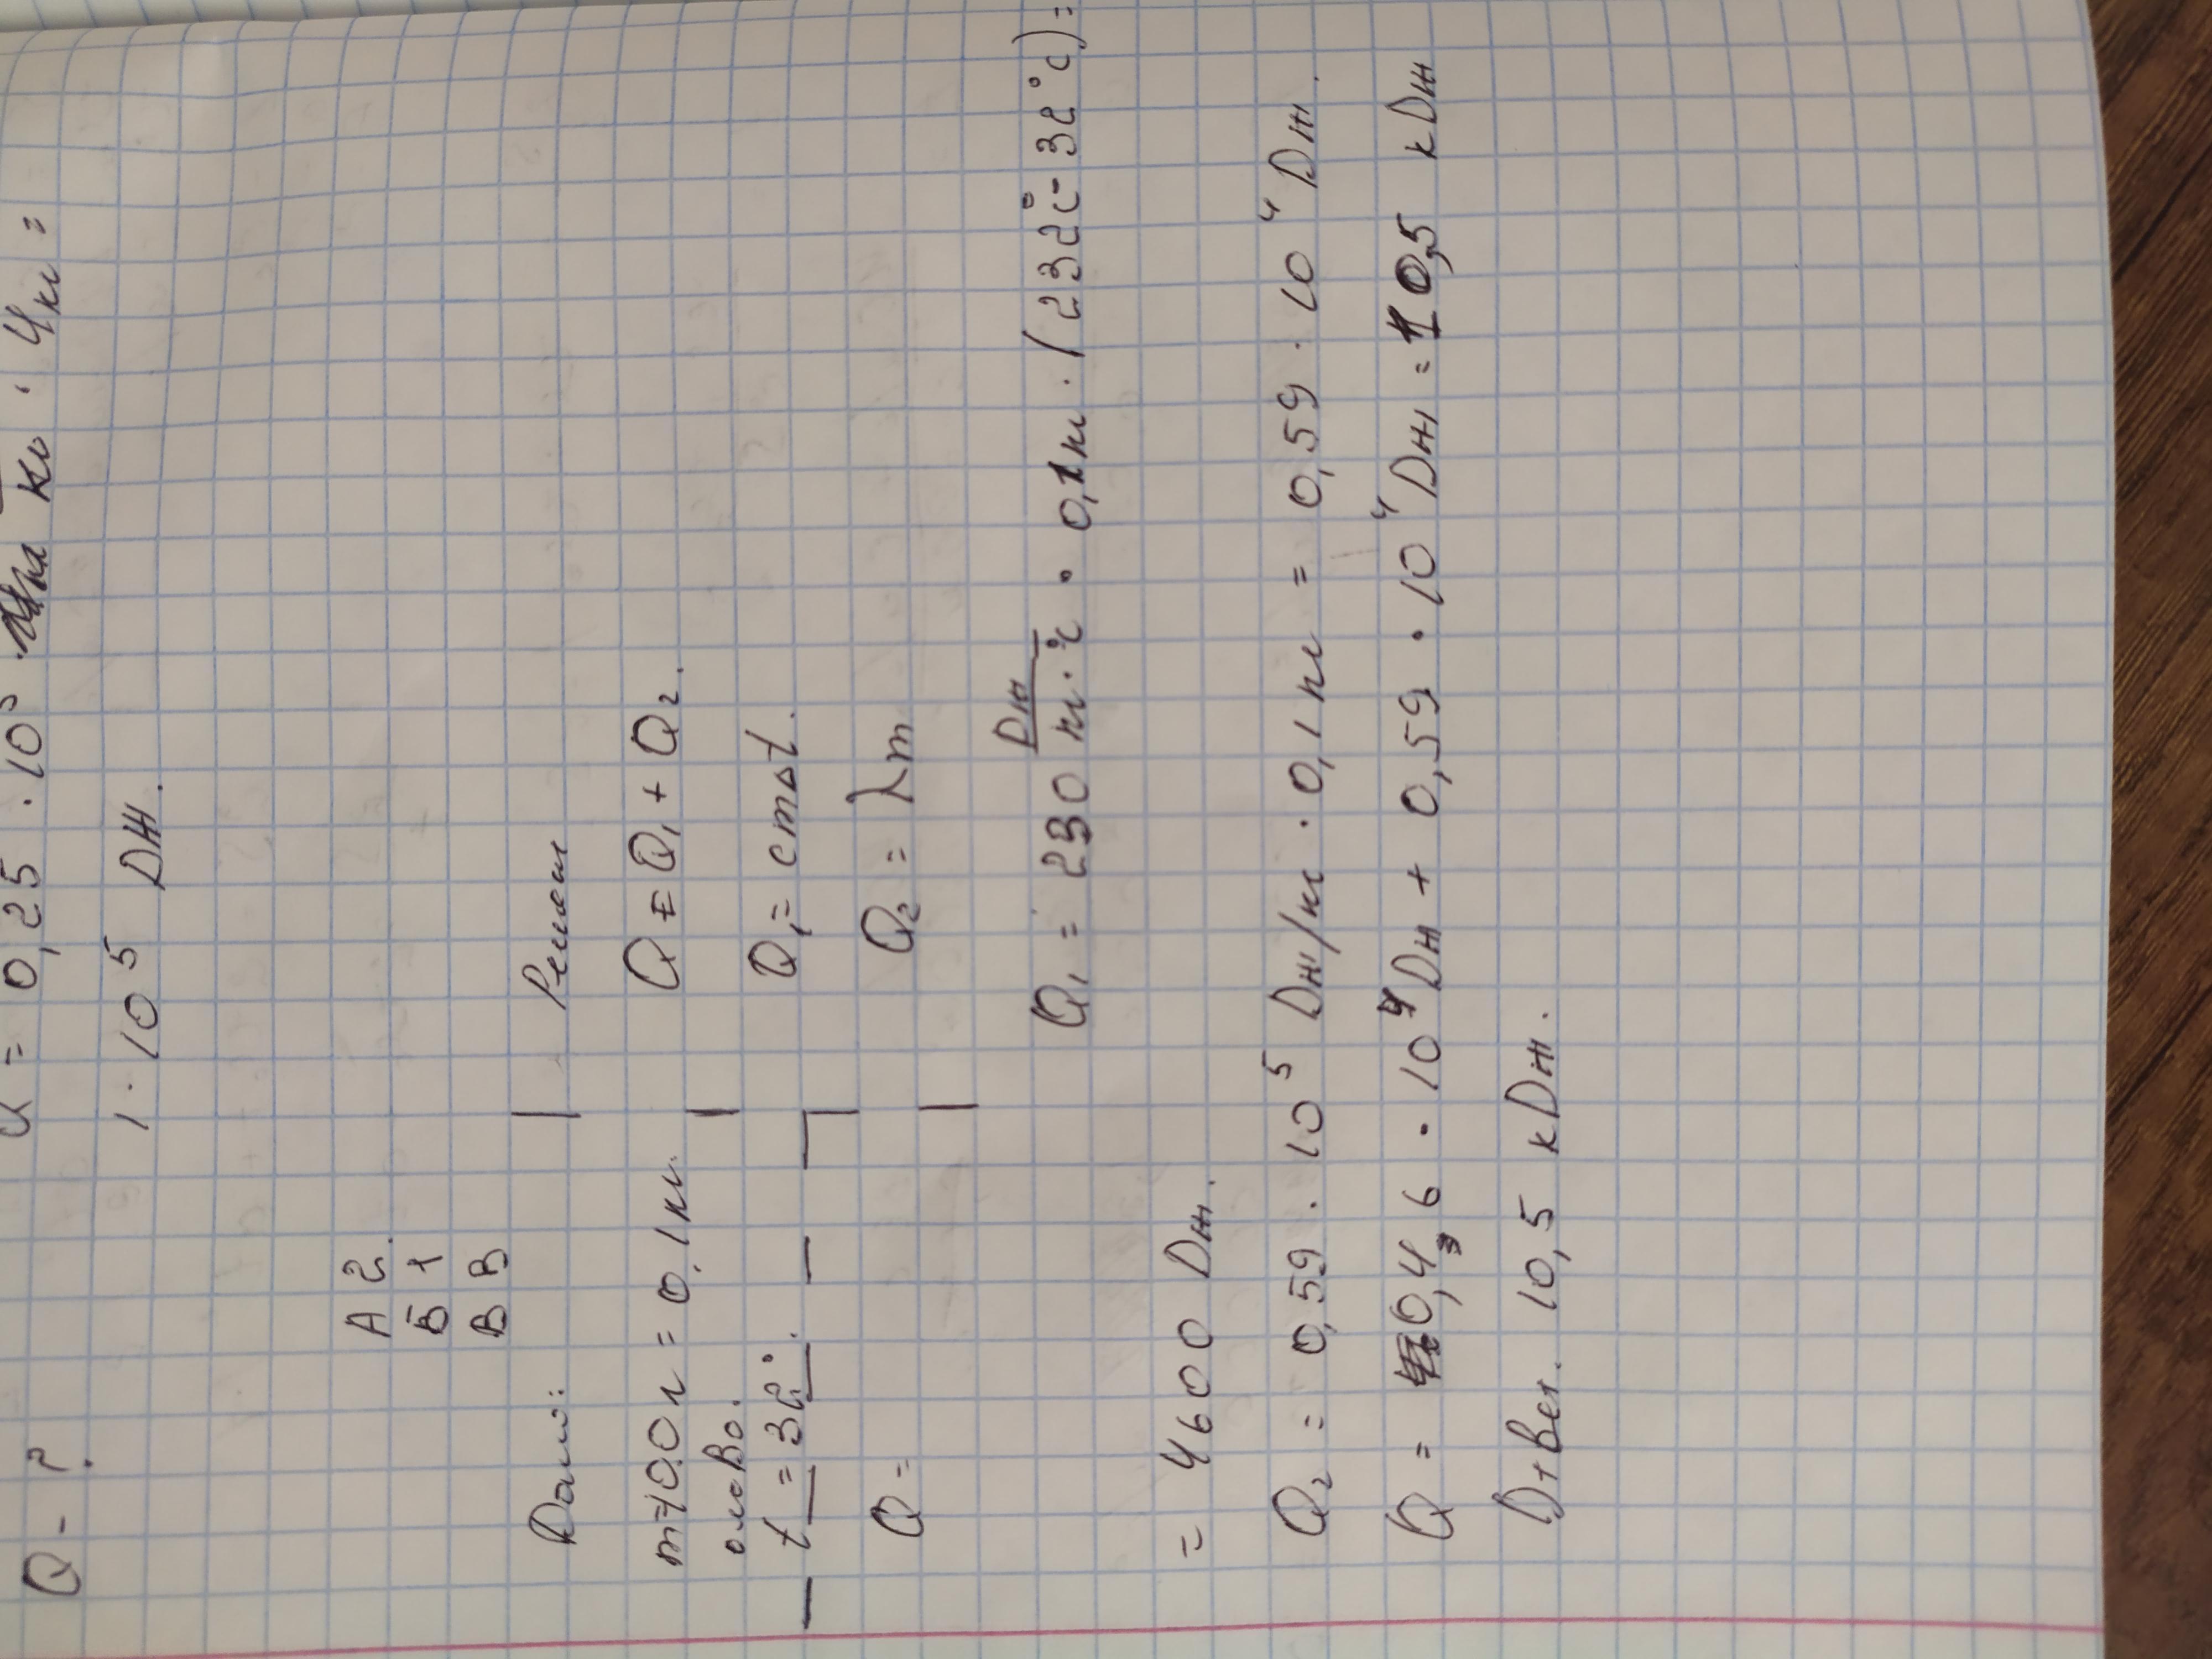 = 0,25 · 10⁵ кг · 4кг =
Q - ?
1 · 10⁵ Дж.
А 2.
Б 1
В В
Дано: | Решен
m=100г = 0,1кг. | Q = Q₁ + Q₂.
олово.
t = 32°. | Q₁ = cmΔt.
Q = | Q₂ = λm
Q₁ = 230 Дж/кг·°c · 0,1кг · (232°c - 32°c) =
= 4600 Дж.
Q₂ = 0,59 · 10⁵ Дж/кг · 0,1 кг = 0,59 · 10⁴ Дж.
Q = 0,46 · 10⁴ Дж + 0,59 · 10⁴ Дж = 10,5 кДж
Ответ. 10,5 кДж.